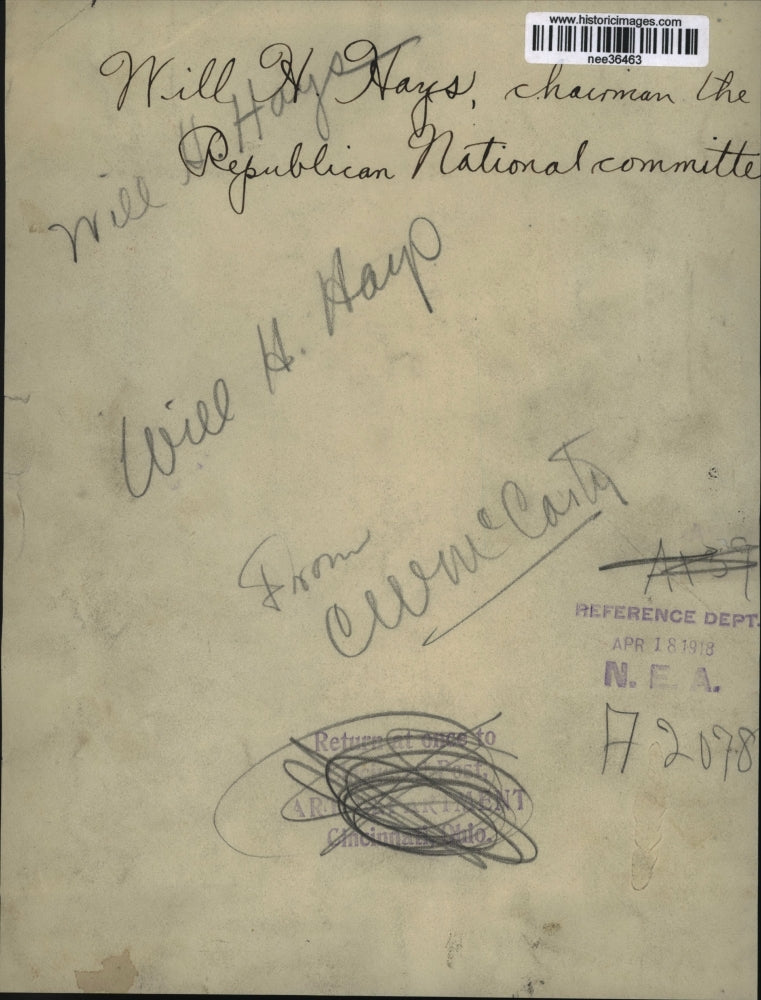 www.historicimages.com
nee36463
Will H. Hays, chairman the
Republican National committe
Will H Hays
Will H. Hays
From
CW McCarty
A139
REFERENCE DEPT.
APR 18 1918
N. E. A.
A2078
Return at once to
Post,
ART DEPARTMENT
Cincinnati, Ohio.